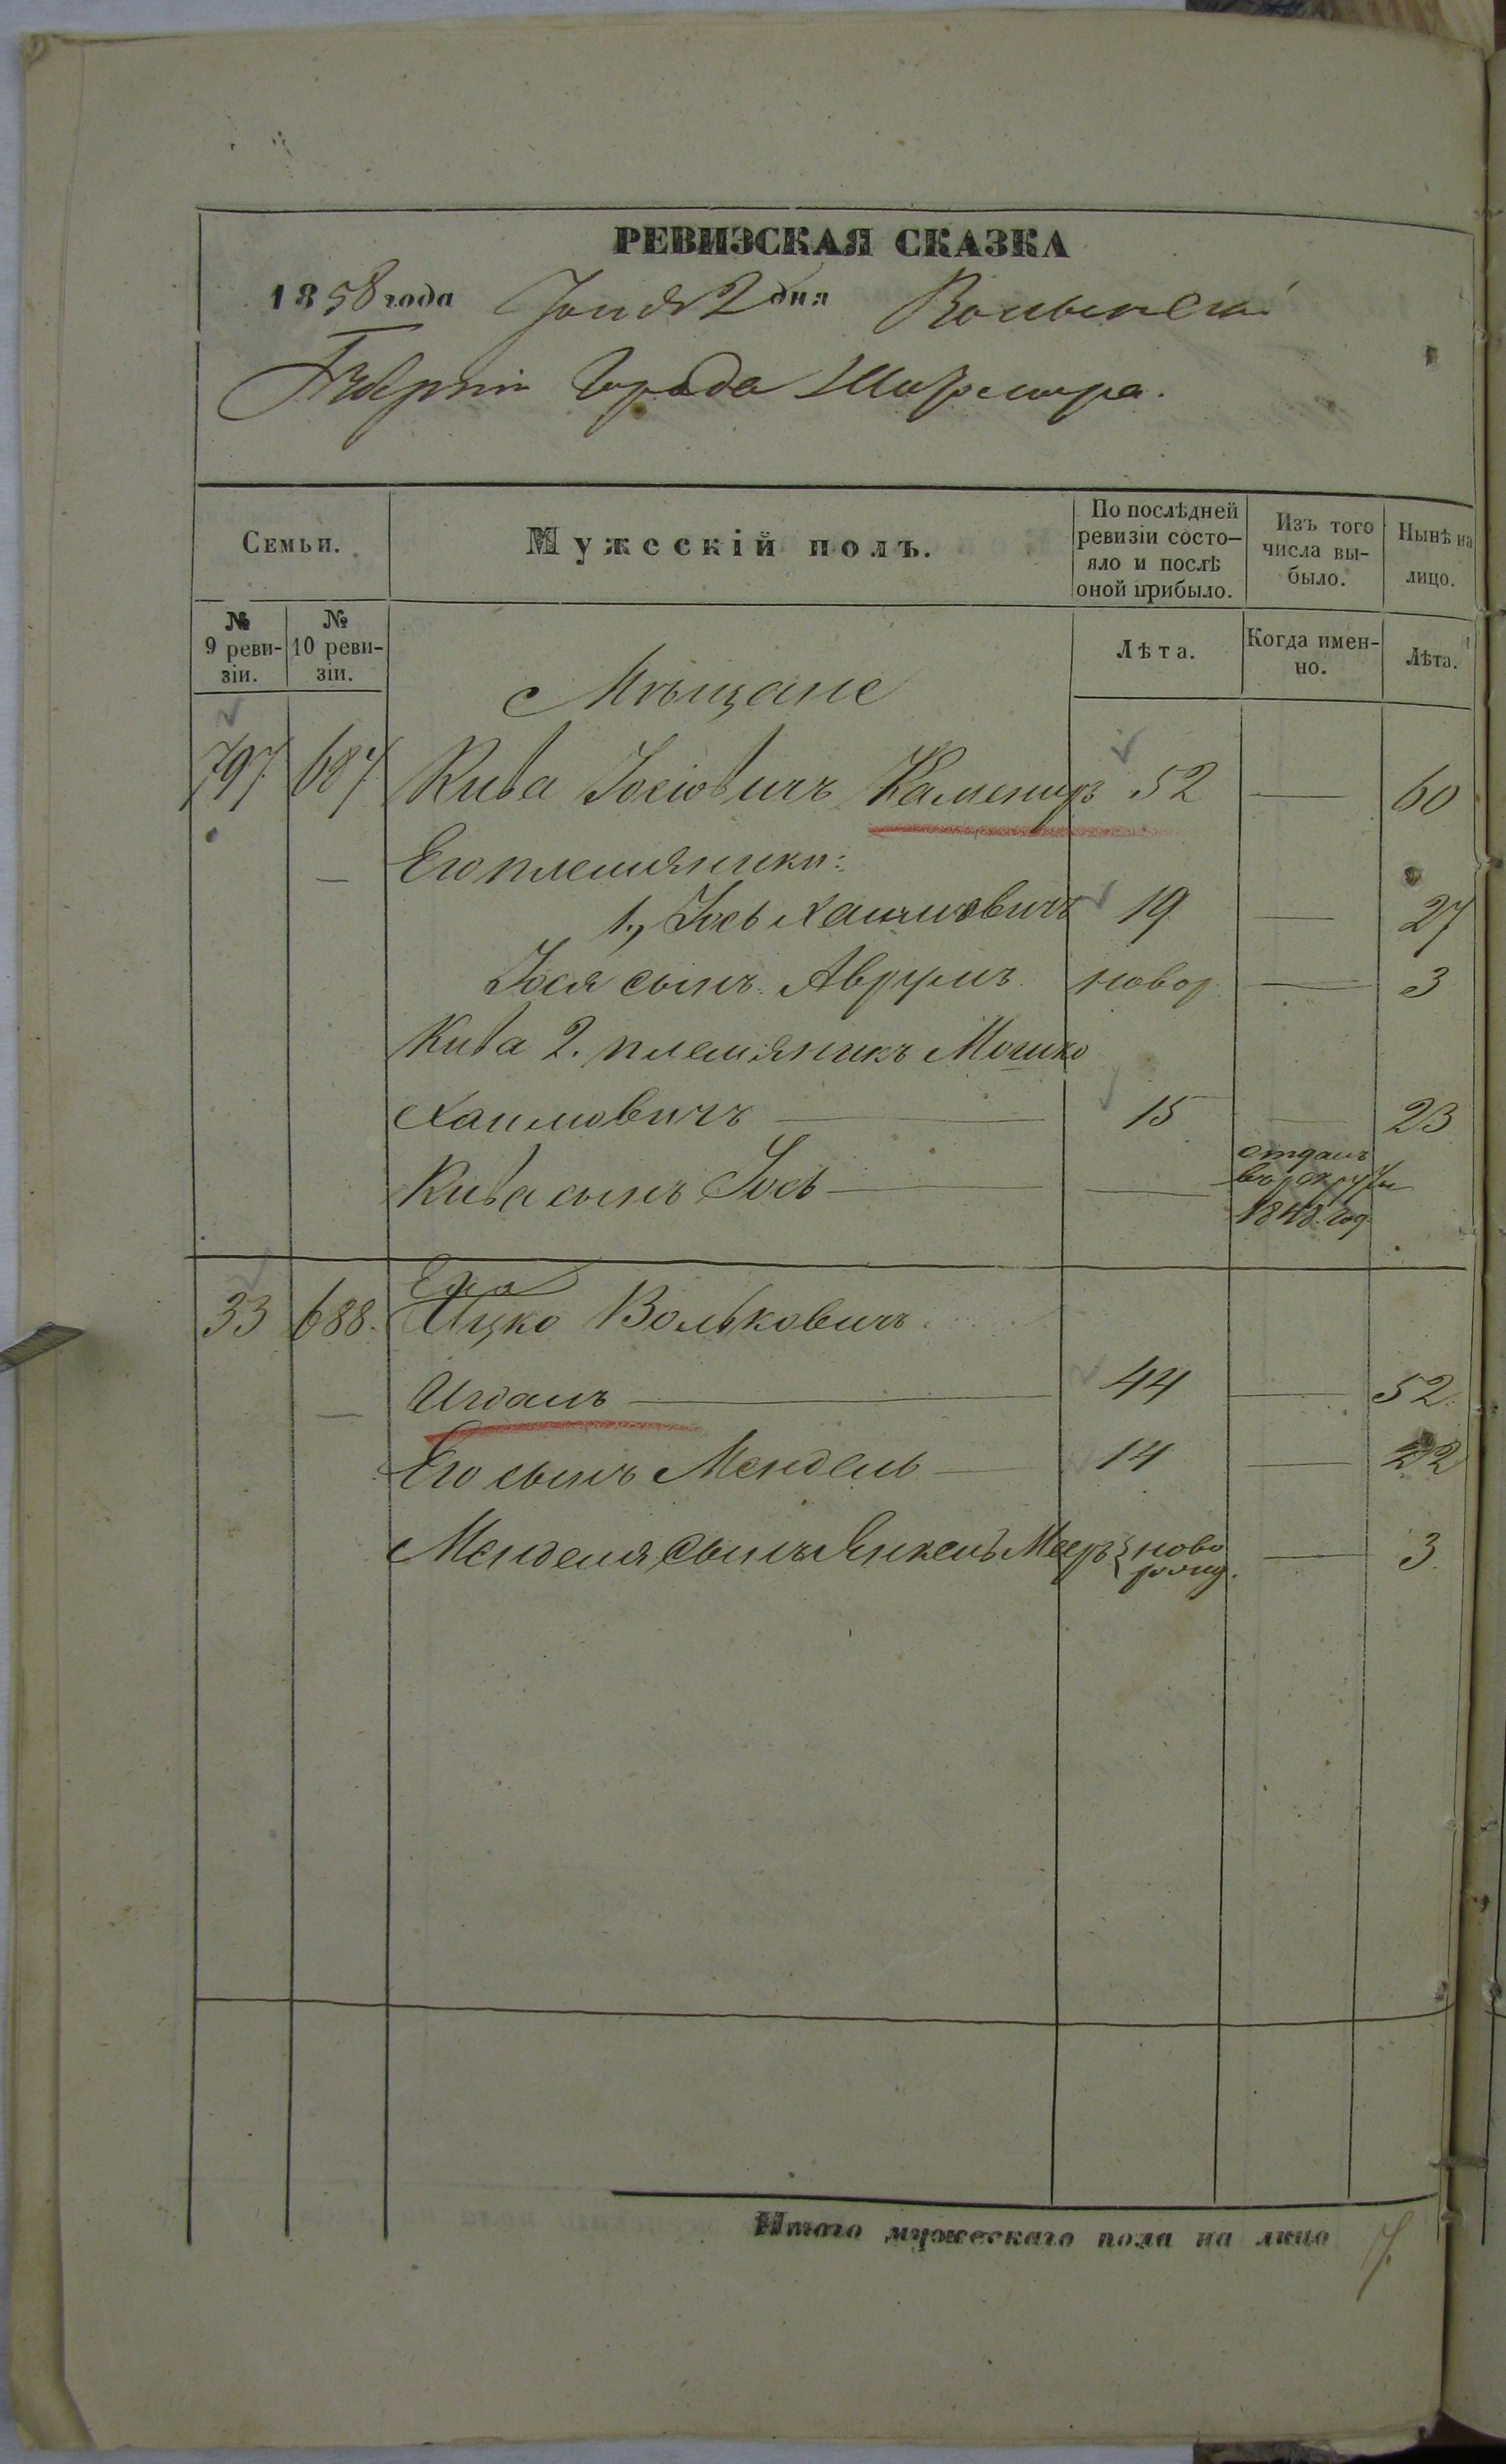 РЕВИЗСКАЯ СКАЗКА
1858 года Іюня 2 дня Волынской
Губерніи Города Житомира.
Семьи.
Мужескій полъ.
По послѣдней
ревизіи состо-
яло и послѣ
оной прибыло.
Изъ того
числа вы-
было.
Нынѣ на
лицо.
№
9 реви-
зіи.
№
10 реви-
зіи.
Лѣта.
Когда имен-
но.
Лѣта.
Мѣщане
797 687 Кива Іосіовичъ Камениръ 52 — 60
Его племяники:
1., Іось Хаимовичъ 19 — 27
Іося сынъ Аврумъ новор — 3
Кива 2. племяникъ Мошко
Хаимовичъ — 15 — 23
Кива сынъ Іось — —
отданъ
в рекруты
1848 год
33 688. Ицко Вольковичъ
— 44 — 52.
Его сынъ Мендель — 14 — 22
Менделя сынъ Янкель Меер ново — 3.
рожд.
Итого мужескаго пола на лицо 7.